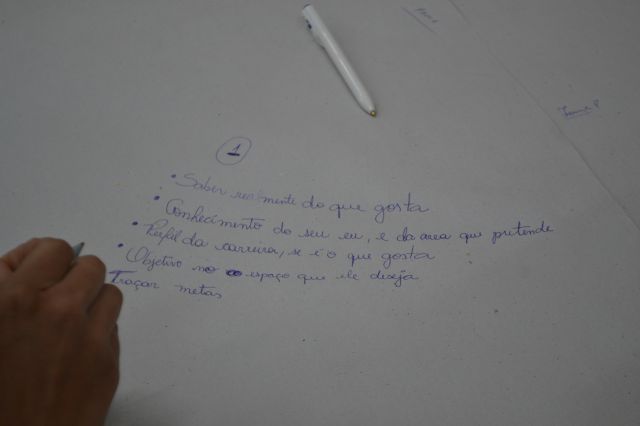 1
• Saber realmente do que gosta
• Conhecimento do seu eu, e da area que pretende
• Perfil da carreira, se é o que gosta
• Objetivo no espaço que ele deseja
Traçar metas